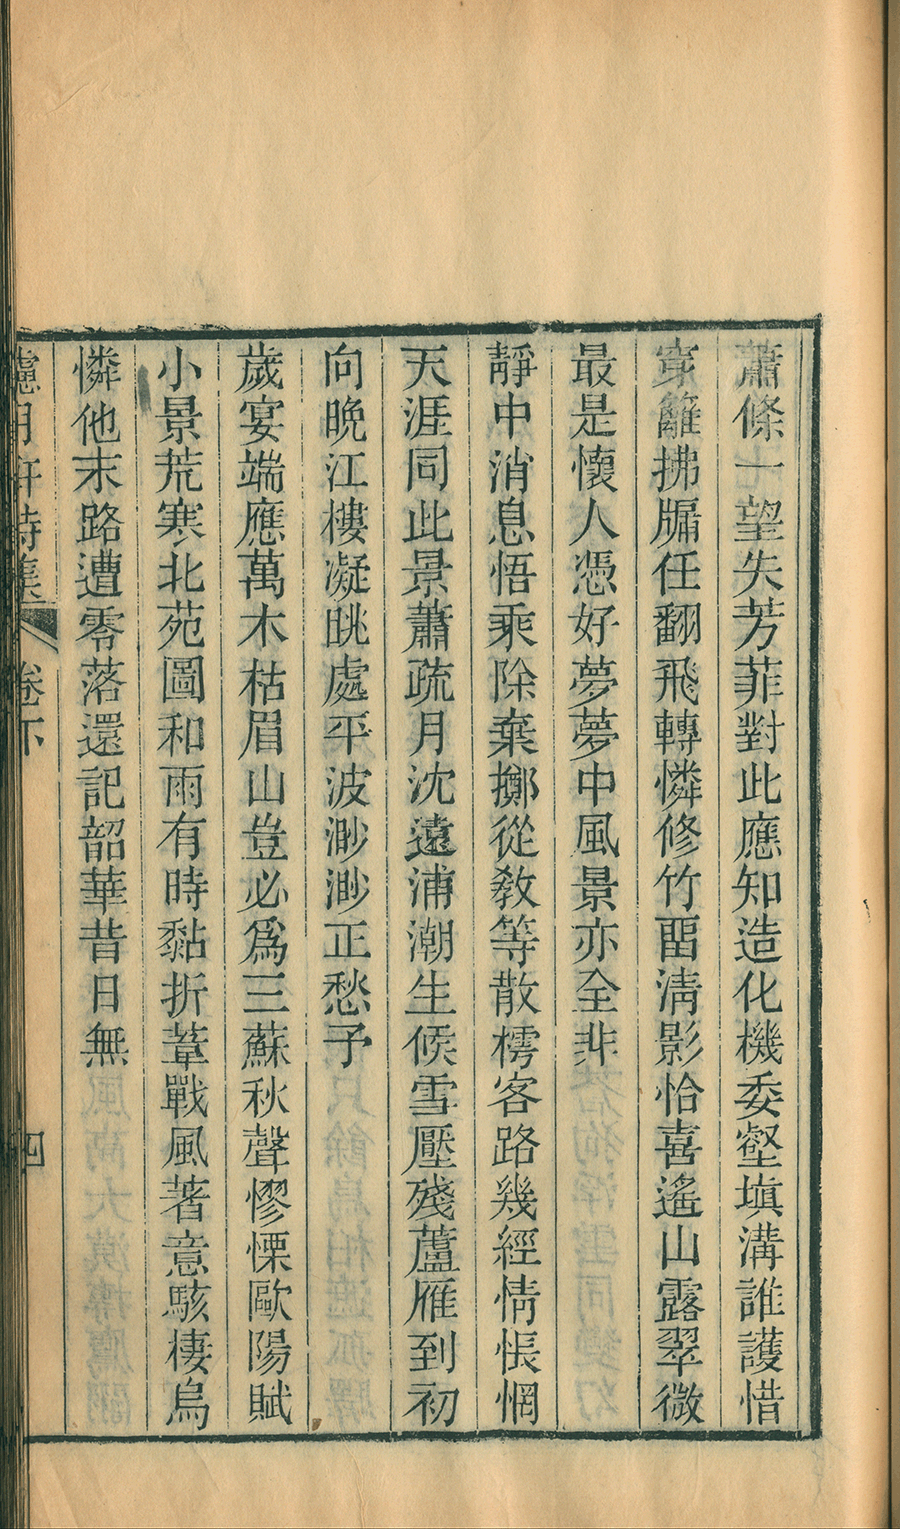 蕭條一望失芳菲對此應知造化機委壑塡溝誰護惜
穿籬拂牖任翻飛轉憐修竹畱淸影恰喜遙山露翠微
最是懷人憑好夢夢中風景亦全非
靜中消息悟乘除棄擲從敎等散樗客路幾經情悵惘
天涯同此景蕭疏月沈遠浦潮生候雪壓殘蘆雁到初
向晚江樓凝眺處平波渺渺正愁予
歲宴端應萬木枯眉山豈必爲三蘇秋聲憀慄歐陽賦
小景荒寒北苑圖和雨有時黏折葦戰風著意駭棲烏
憐他末路遭零落還記韶華昔日無
月軒詩集 卷下 四